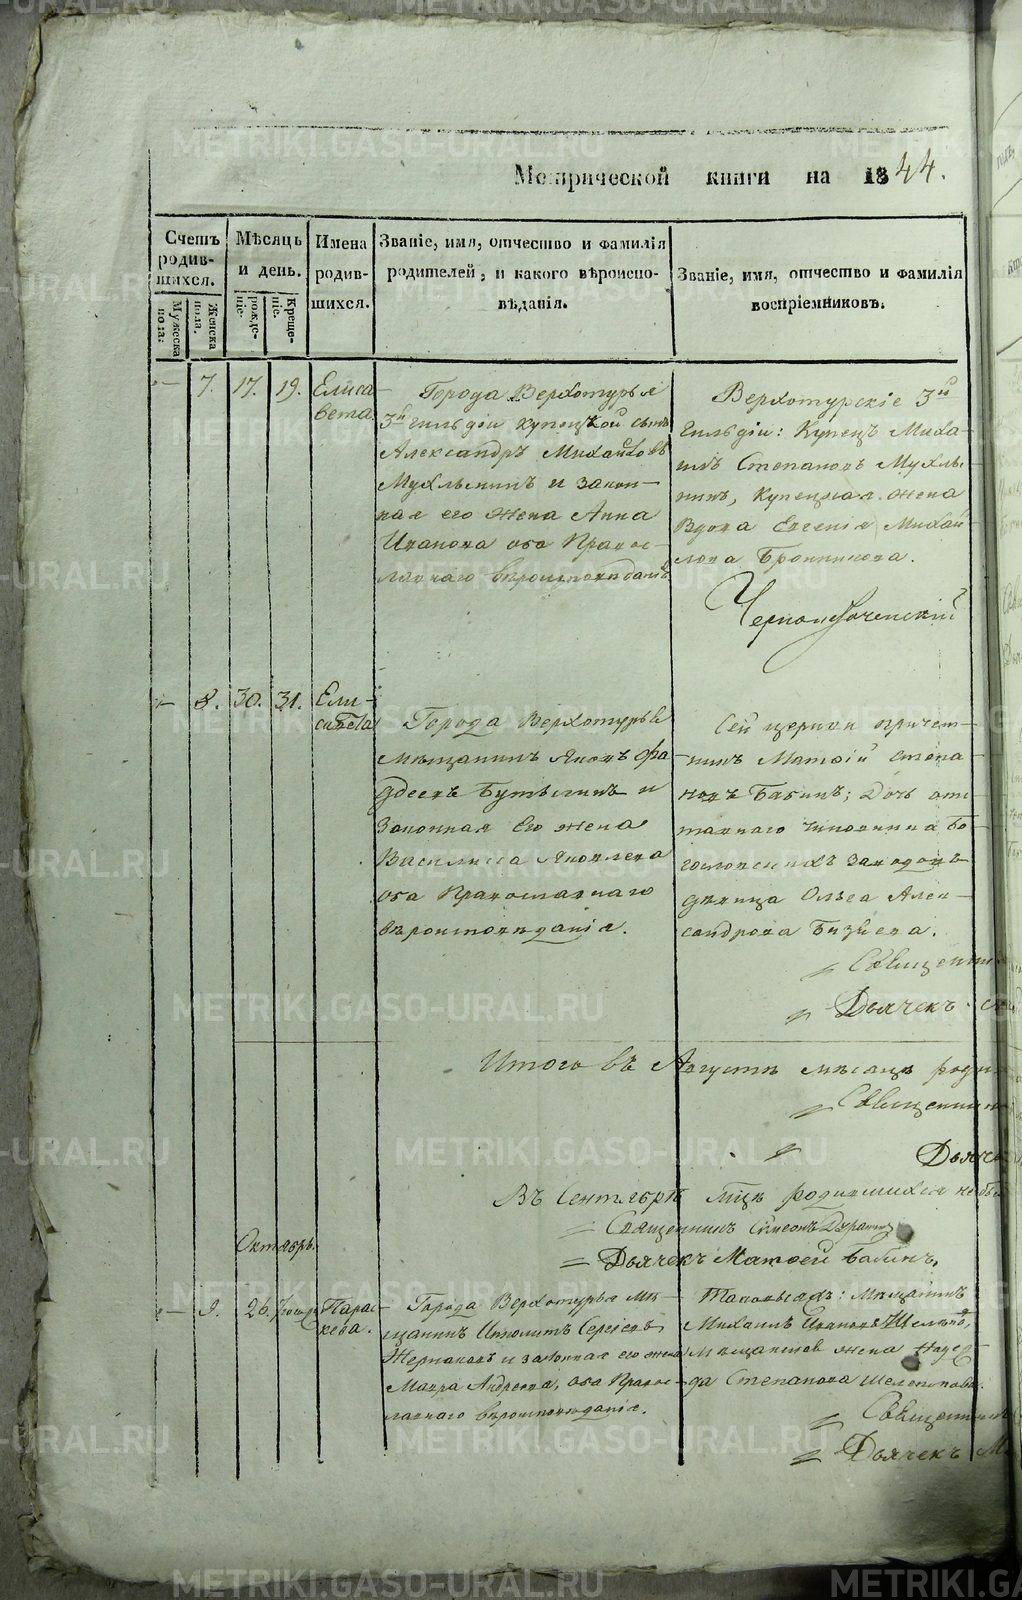 Метрической книги на 1844.
Счетъ родив-
шихся.
Мужеска пола.
Женска пола.
Мѣсяцъ и день.
рожде-
ніе.
Креще-
ніе.
Имена родив-
шихся.
Званіе, имя, отчество и фамилія
родителей, и какого вѣроиспо-
вѣданія.
Званіе, имя, отчество и фамилія
воспріемниковъ.
— 7. 17. 19. Елиса-
вета
Города Верхотурья
3й гильдіи купецкой сынъ
Александръ Михайловъ
и закон-
ная его жена Анна
Иванова оба Правос-
лавнаго вѣроисповѣданія
Верхотурскіе 3й
Гильдіи: Купецъ Миха-
илъ Степановъ
купецкая жена
Вдова Евгенія Михай-
лова Бронникова.
— 8. 30. 31. Ели-
савета
Города Верхотурья
мѣщанинъ Яковъ Фа-
деевъ и
Законная Его жена
Василисса Яковлева
оба Православнаго
вѣроисповѣданія.
Сей церкви причет-
никъ Матѳій Степа-
новъ Бабинъ; Дочь отс-
тавнаго чиновника Бо-
гословскихъ заводовъ
дѣвица Ольга Алек-
сандрова
Священни
Дьячекъ
Итого въ Августѣ мѣсяцѣ роди
Священни
Дьяче
Въ Сентябрѣ мцѣ родившихся небы
Священникъ Симеонъ
Дьячекъ Матѳей Бабинъ.
Октябрь.
— 9. 26. Парас-
кева.
Города Верхотурья Мѣ-
щанинъ Иполитъ Сергіевъ
и законная его жена
Мавра Андреева, оба Правос-
лавнаго вѣроисповѣданія.
Таковыяжъ: Мѣщанинъ
Михаилъ Ивановъ
мѣщанская жена Надеж-
да Степанова
Священник
Дьячекъ М
METRIKI.GASO-URAL.RU